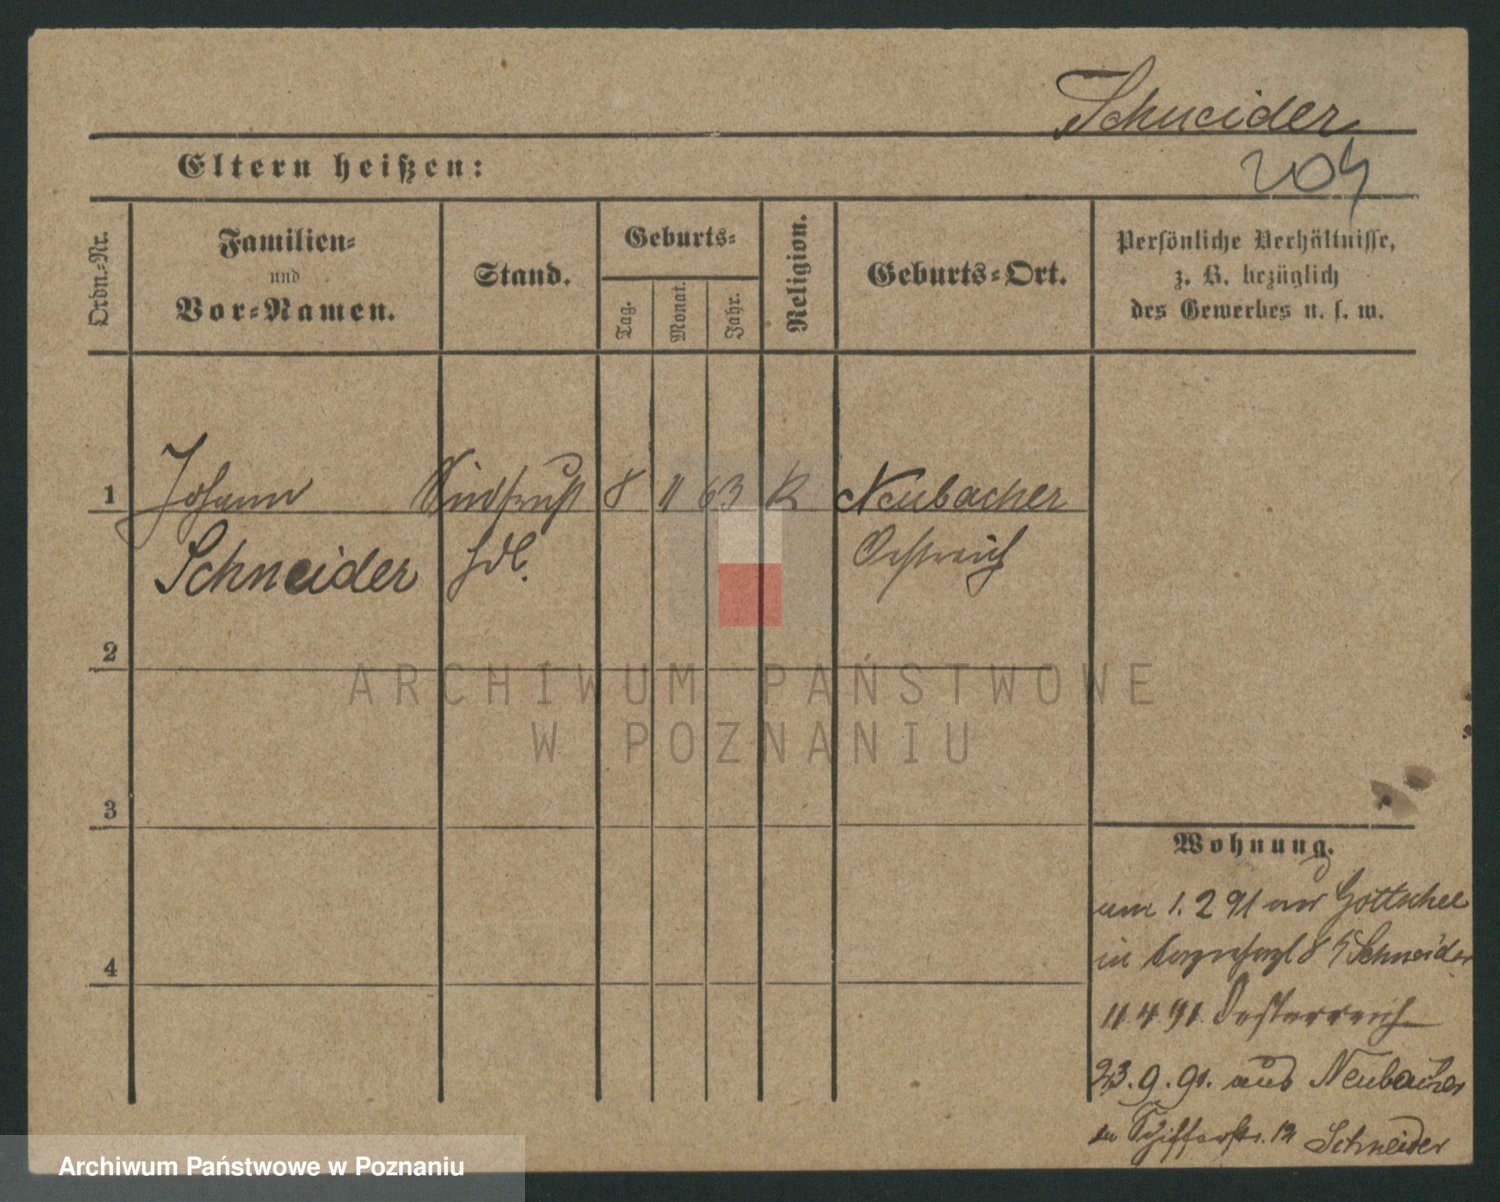 Schneider
Eltern heißen:
204
Ordn.-Nr.
Familien-
und
Vor-Namen.
Stand.
Geburts-
Tag.
Monat.
Jahr.
Religion.
Geburts-Ort.
Persönliche Verhältnisse,
z. B. bezüglich
des Gewerbes u. s. w.
1 Johann 8 11 63 K Neubacher
Schneider hdl. Oestreich
2
3
4
Wohnung.
am 1. 2 91 aus Gottschee
in 8 Schneider
11 4 91. Oesterreich
23. 9. 91. aus Neubacher
in Schifferstr. 12 Schneider
ARCHIWUM PAŃSTWOWE
W POZNANIU
Archiwum Państwowe w Poznaniu